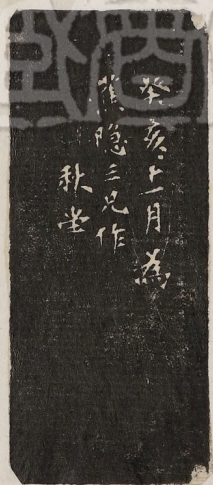 癸亥十一月為
隐三兄作
秋堂